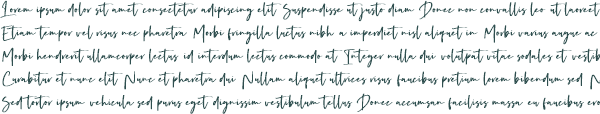 Lorem ipsum dolor sit amet consectetur adipiscing elit Suspendisse ut justo diam Donec non convallis leo ut laoreet
Etiam tempor vel risus nec pharetra Morbi fringilla luctus nibh a imperdiet nisl aliquet in Morbi varius augue ac
Morbi hendrerit ullamcorper lectus id interdum lectus commodo at Integer nulla dui volutpat vitae sodales et vestib
Curabitur et nunc elit Nunc et pharetra dui Nullam aliquet ultrices risus faucibus pretium lorem bibendum sed N
Sed tortor ipsum vehicula sed purus eget dignissim vestibulum tellus Donec accumsan facilisis massa eu faucibus ero